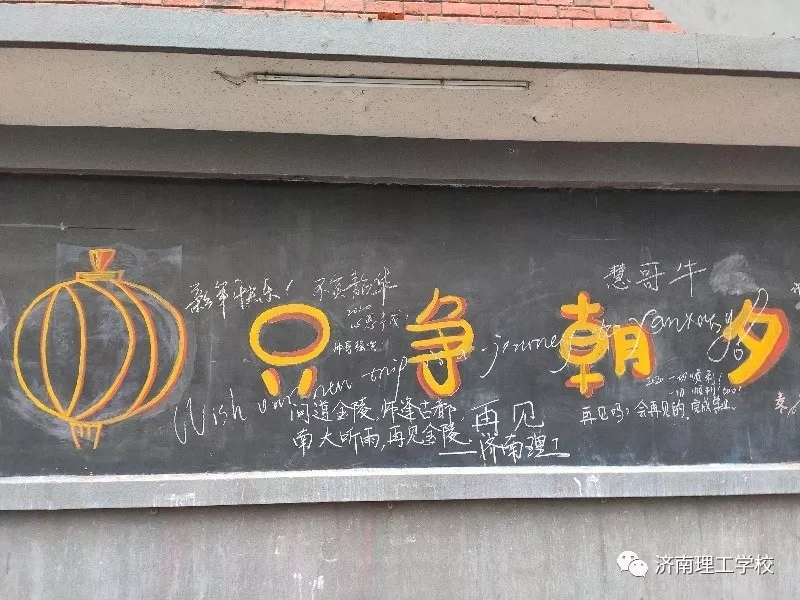 新年快乐！不负韶华
慧哥牛
2020
心想事成！
只争朝夕
Wish our new trip a journey to
2020 一切顺利！
一切顺利too！
问道金陵,师逢古都,
再见
再见吗？会再见的.
南大听雨,再见金陵.
——济南理工
济南理工学校